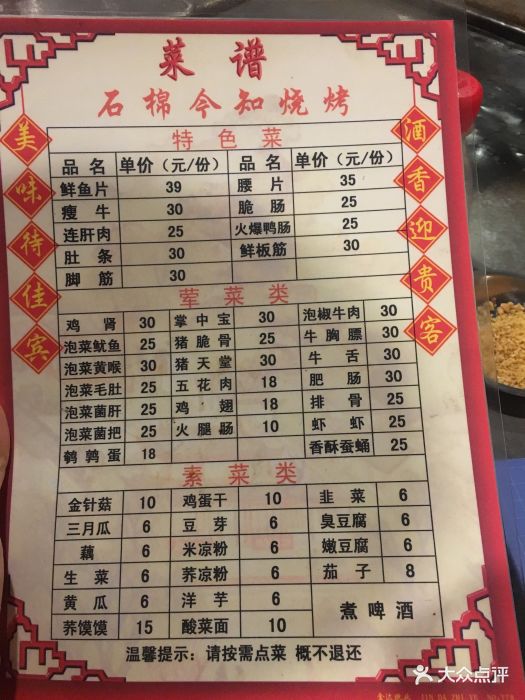 菜谱
石棉今知烧烤
美味待佳宾
酒香迎贵客
特色菜
品名 单价（元/份） 品名 单价（元/份）
鲜鱼片 39 腰片 35
瘦牛 30 脆肠 25
连肝肉 25 火爆鸭肠 25
肚条 30 鲜板筋 30
脚筋 30
荤菜类
鸡肾 30 掌中宝 30 泡椒牛肉 30
泡菜鱿鱼 25 猪脆骨 25 牛胸膘 30
泡菜黄喉 30 猪天堂 30 牛舌 30
泡菜毛肚 25 五花肉 18 肥肠 30
泡菜菌肝 25 鸡翅 18 排骨 25
泡菜菌把 25 火腿肠 10 虾虾 25
鹌鹑蛋 18 香酥蚕蛹 25
素菜类
金针菇 10 鸡蛋干 10 韭菜 6
三月瓜 6 豆芽 6 臭豆腐 6
藕 6 米凉粉 6 嫩豆腐 6
生菜 6 荞凉粉 6 茄子 8
黄瓜 6 洋芋 6 煮啤酒
荞馍馍 15 酸菜面 10
温馨提示：请按需点菜 概不退还
大众点评